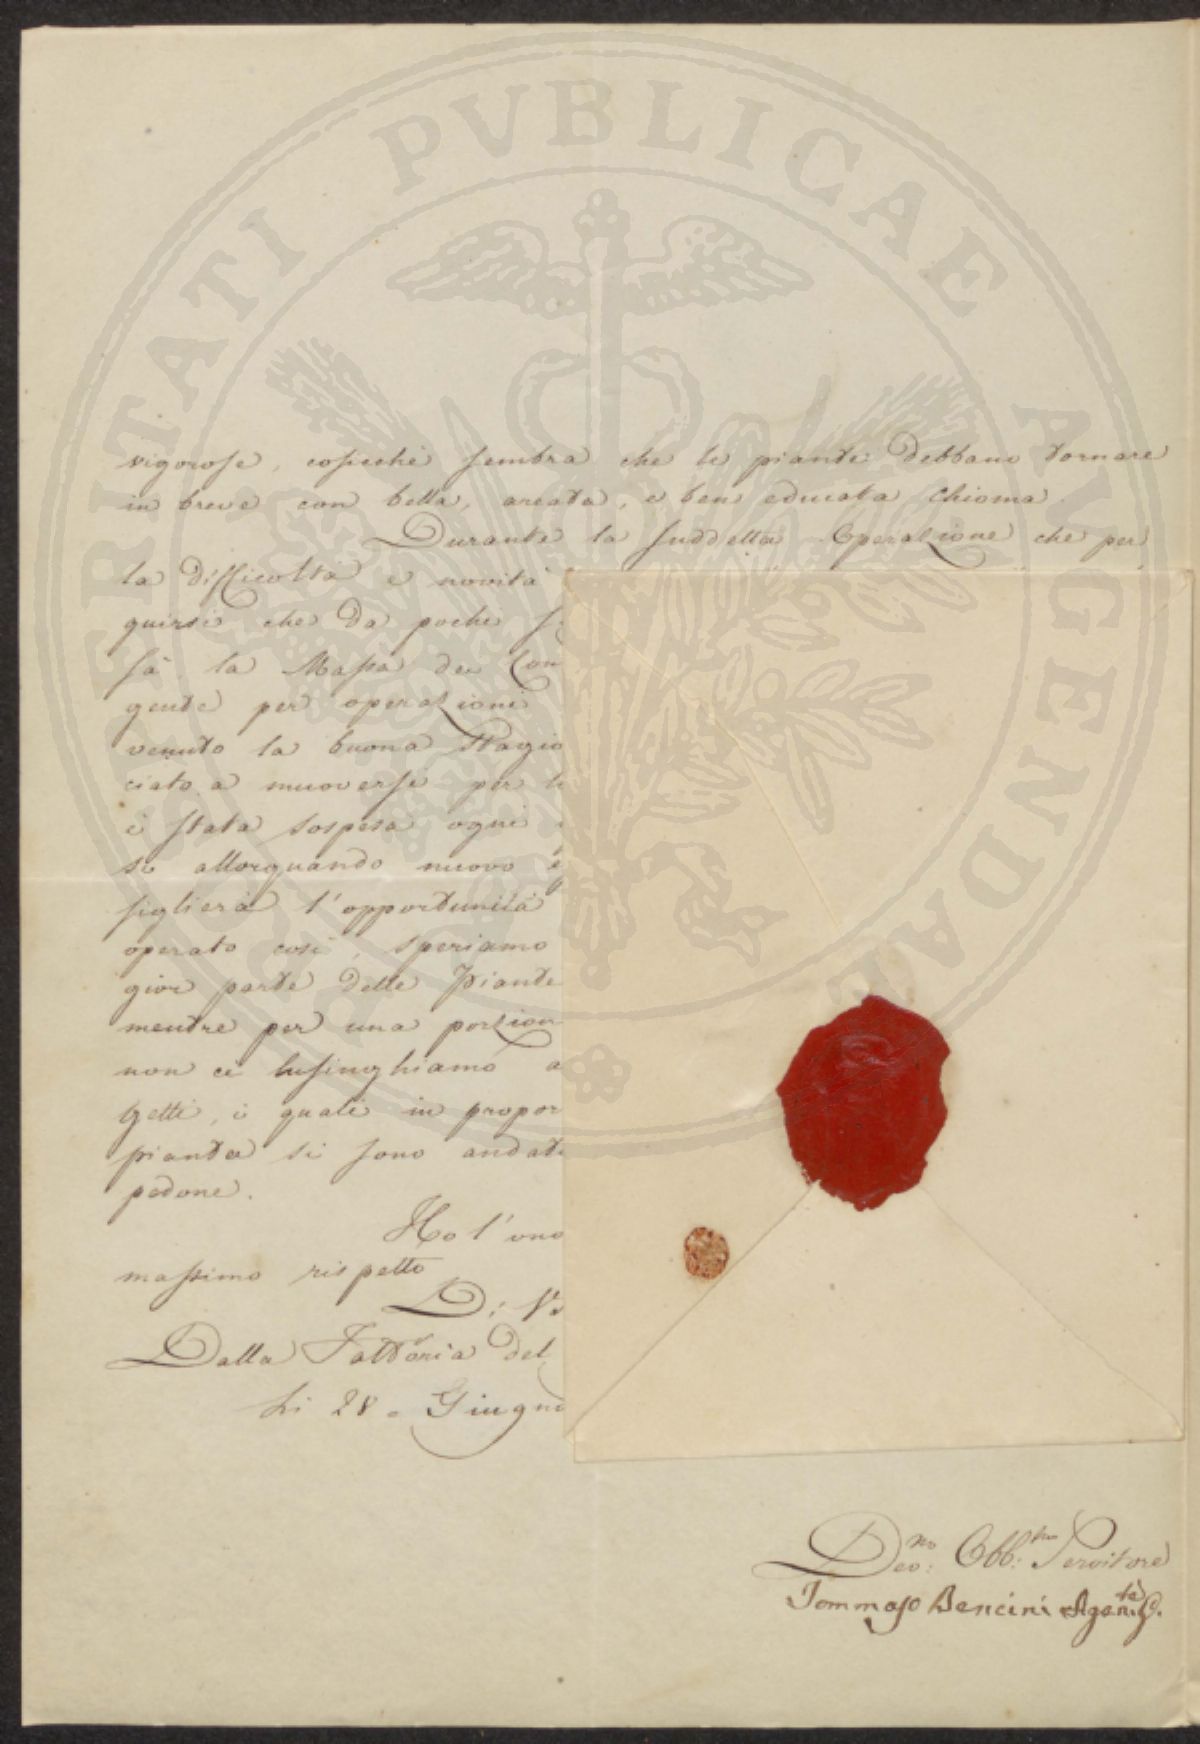 PROSPERITATI PVBLICAE AVGENDAE
vigorose, cosicchè sembra che le piante debbano tornare
in breve con bella, areata, e ben educata chioma.
Durante la suddetta Operazione che per
la difficoltà e novità
guirsi che da pochi
sà la Massa dei Con
gente per operazioni
venuto la buona stagio
ciato a muoversi per le
è stata sospesa ogni
si allorquando nuovo
siglierà l'opportunità
operato così, speriamo
gior parte delle Piante
mentre per una porzion
non ci lusinghiamo a
getti, i quali in propor
pianta si sono andati
pedone.
Ho l'ono
massimo rispetto
Di V.
Dalla Fattoria del
Li 28. Giugno
Devo:mo Obb:mo Servitore
Tommaso Bencini Agente